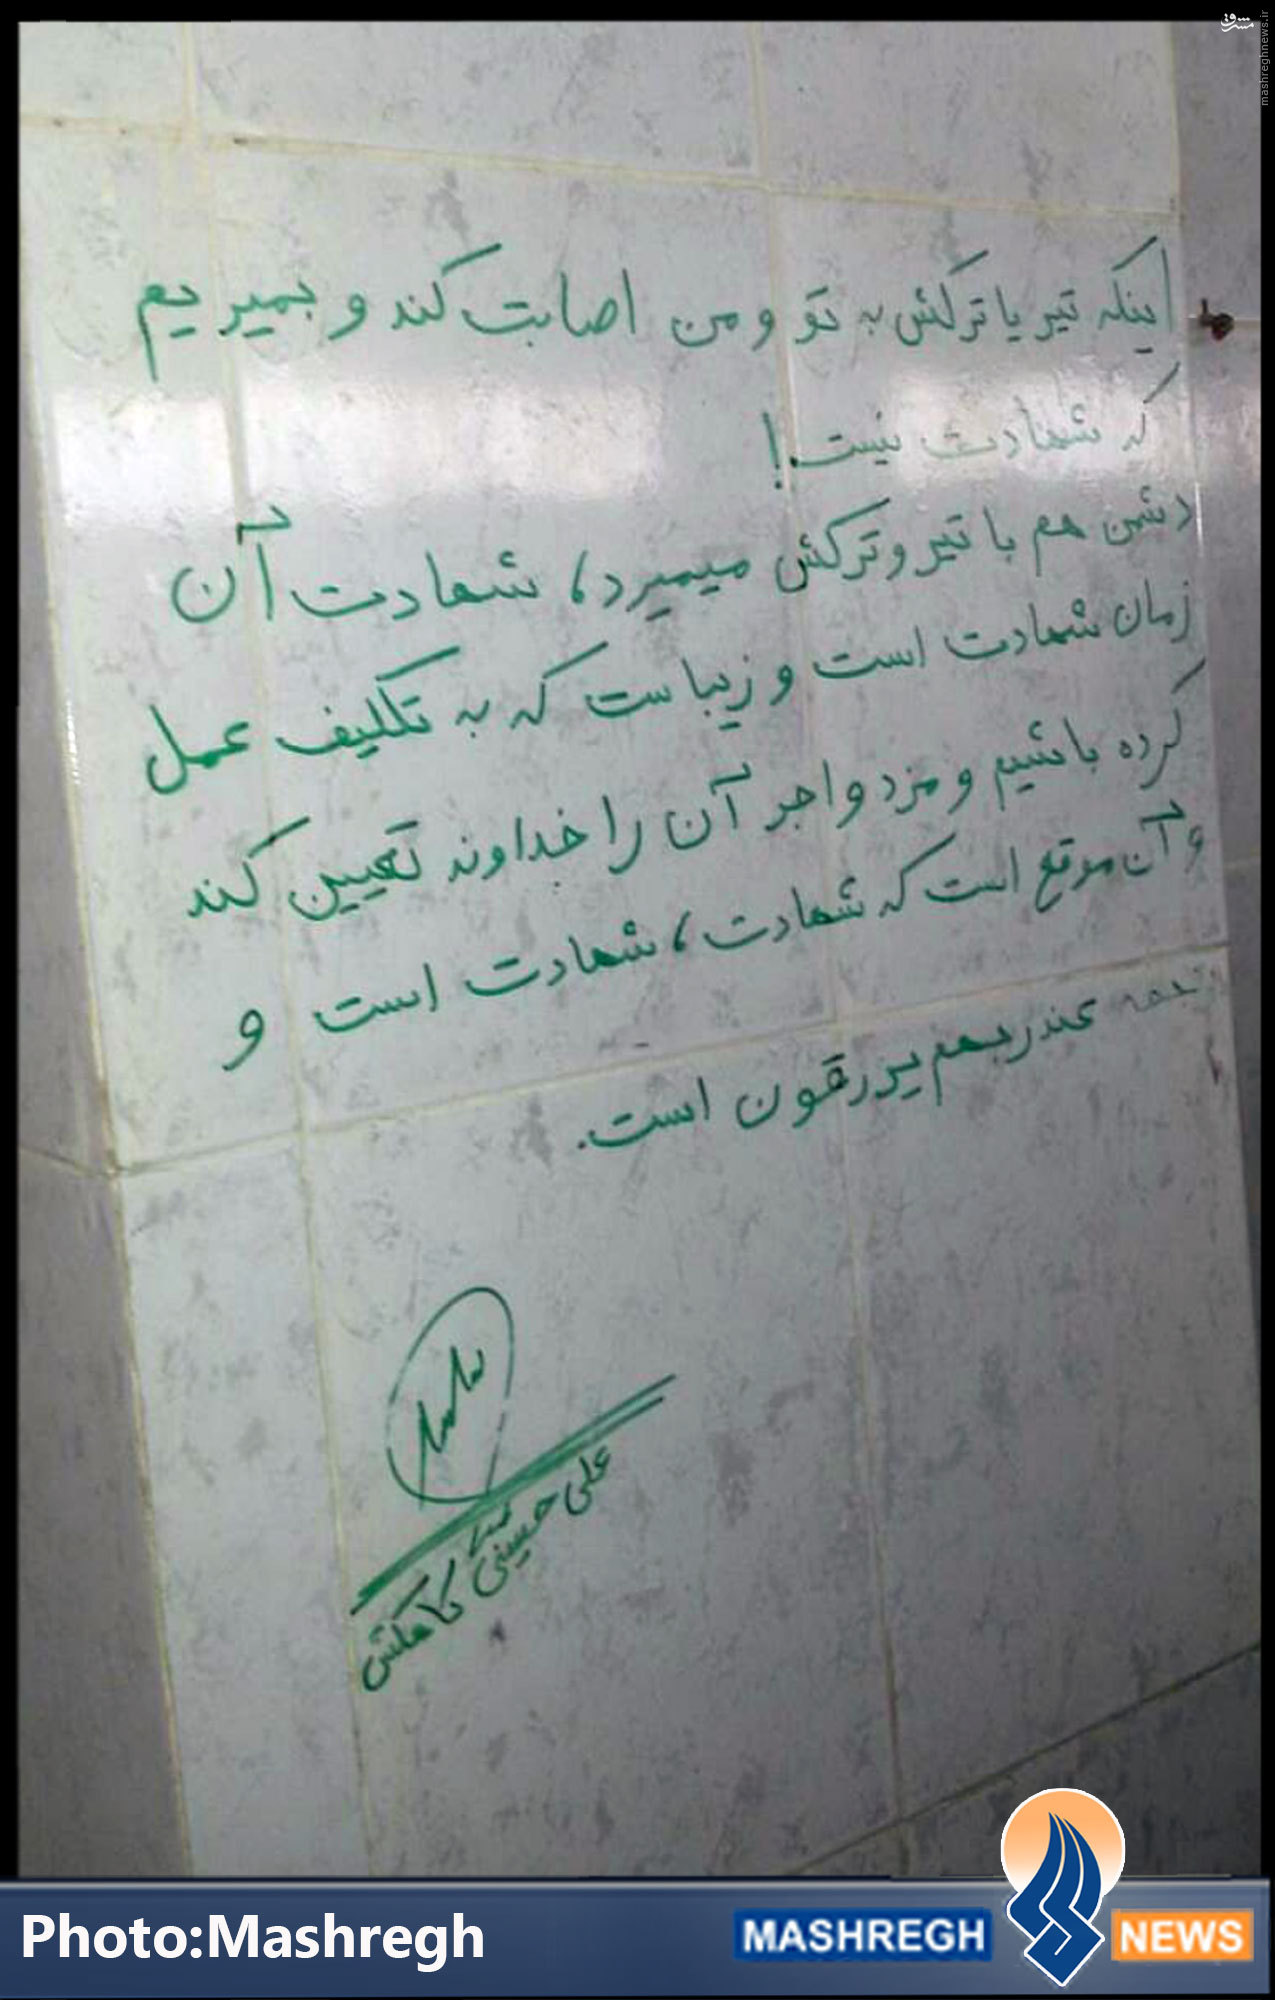 مشرق
mashreghnews.ir
اینکه تیر یا ترکش به تو و من اصابت کند و بمیریم
که شهادت نیست!
دشمن هم با تیر و ترکش میمیرد، شهادت آن
زمان شهادت است و زیباست که به تکلیف عمل
کرده باشیم و مزد و اجر آن را خداوند تعیین کند
و آن موقع است که شهادت، شهادت است و
عند ربهم یرزقون است.
علی حسینی کاهکش
Photo:Mashregh
MASHREGH NEWS